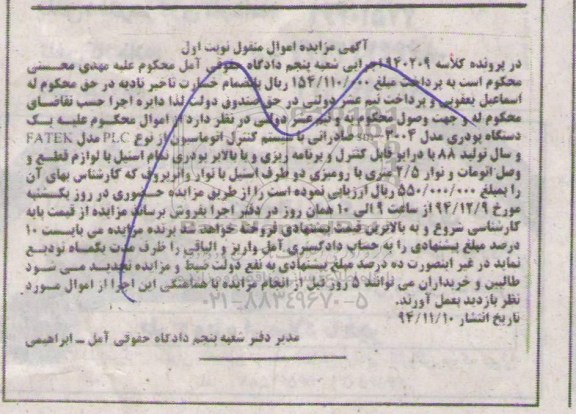 آگهی مزایده اموال منقول نوبت اول
در پرونده کلاسه ۹۴۰۲۰۹ اجرایی شعبه پنجم دادگاه حقوقی آمل محکوم علیه مهدی محسنی
محکوم است به پرداخت مبلغ ۱۵۴/۱۱۰/۰۰۰ ریال بانضمام خسارت تاخیر تادیه در حق محکوم له
اسماعیل یعقوبی و پرداخت نیم عشر دولتی در حق صندوق دولت لذا دایره اجرا حسب تقاضای
محکوم له و جهت وصول محکوم به و نیم عشر دولتی در نظر دارد از اموال محکوم علیه یک
دستگاه پودری مدل ۲۰۰۴ sm صادراتی با سیستم کنترل اتوماسیون از نوع PLC مدل FATEK
و سال تولید ۸۸ با درایو قابل کنترل و برنامه ریزی و با بالابر پودری تمام استیل با لوازم قطع و
وصل اتومات و نوار ۲/۵ متری با رومیزی دو طرف استیل با نوار واترپروف که کارشناس بهای آن
را بمبلغ ۵۵۰/۰۰۰/۰۰۰ ریال ارزیابی نموده است را از طریق مزایده حضوری در روز یکشنبه
مورخ ۹۴/۱۲/۹ از ساعت ۹ الی ۱۰ همان روز در دفتر اجرا بفروش برساند مزایده از قیمت پایه
کارشناسی شروع و به بالاترین قیمت پیشنهادی فروخته خواهد شد برنده مزایده می بایست ۱۰
درصد مبلغ پیشنهادی را به حساب دادگستری آمل واریز و الباقی را ظرف مدت یکماه تودیع
نماید در غیر اینصورت ده درصد مبلغ پیشنهادی به نفع دولت ضبط و مزایده تجدید می شود
طالبین و خریداران می توانند ۵ روز قبل از انجام مزایده با هماهنگی این اجرا از اموال مورد
نظر بازدید بعمل آورند.
۰۲۱-۸۸۳۴۹۶۷۰-۵
تاریخ انتشار ۹۴/۱۱/۱۰
مدیر دفتر شعبه پنجم دادگاه حقوقی آمل ـ ابراهیمی